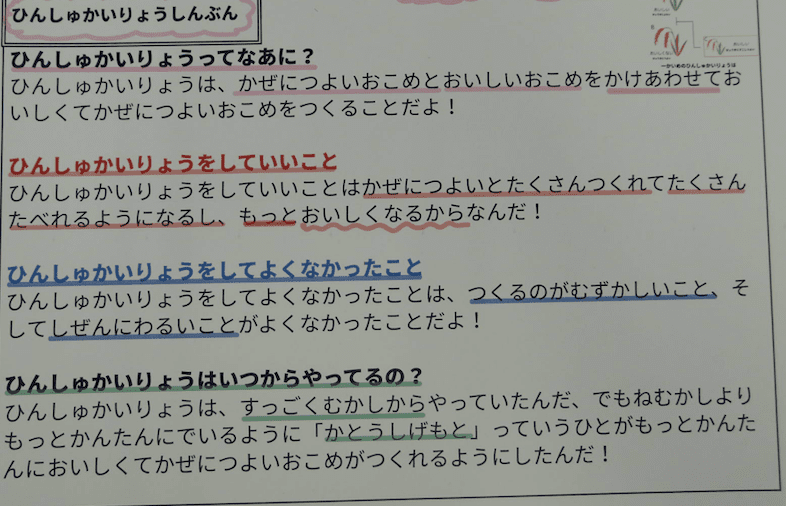 ひんしゅかいりょうしんぶん
ひんしゅかいりょうってなあに？
ひんしゅかいりょうは、かぜにつよいおこめとおいしいおこめをかけあわせてお
いしくてかぜにつよいおこめをつくることだよ！
ひんしゅかいりょうをしていいこと
ひんしゅかいりょうをしていいことはかぜにつよいとたくさんつくれてたくさん
たべれるようになるし、もっとおいしくなるからなんだ！
ひんしゅかいりょうをしてよくなかったこと
ひんしゅかいりょうをしてよくなかったことは、つくるのがむずかしいこと、そ
してしぜんにわるいことがよくなかったことだよ！
ひんしゅかいりょうはいつからやってるの？
ひんしゅかいりょうは、すっごくむかしからやっていたんだ、でもねむかしより
もっとかんたんにでいるように「かとうしげもと」っていうひとがもっとかんた
んにおいしくてかぜにつよいおこめがつくれるようにしたんだ！